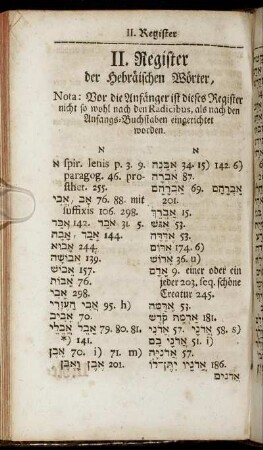 II. Register
II. Register
der Hebräischen Wörter,
Nota: Vor die Anfänger ist dieses Register
nicht so wohl nach den Radicibus, als nach den
Anfangs-Buchstaben eingerichtet
worden.
א
א spir. lenis p. 3. 9.
paragog. 46. pro-
sthet. 255.
אב, אבי 76. 88. mit
suffixis 106. 298.
אבד 142. אבד 5. 31.
אבד, אבת 144.
אבוא 244.
139.
אבוש 157.
אבות 76.
אבי 298.
אבי העזרי 95. h)
אביב 70.
אבל אבלי 79. 80. 81.
*) 141.
אבן 70. i) 71. m)
אבן ואבן 201.
א
34. 15) 142. 6)
אברח 87.
אברהם 69. אברהם
201.
15.
אגש 53.
53.
174. 6)
אדוש 36. u)
אדם 9. einer oder ein
jeder 203. seq. schöne
Creatur 245.
אדמה 53.
אדמת קדש 181.
אדני 57. אדני 58. s)
אדני בם 51. i)
אדניה 57.
186.
אדנים